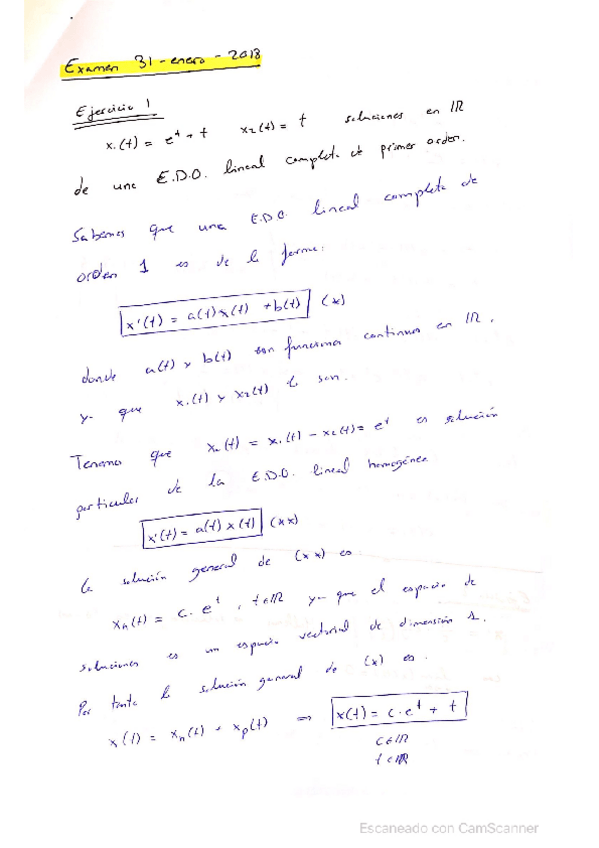 Examen 31-enero-2018
Ejercicio 1
x₁(t) = eᵗ + t x₂(t) = t soluciones en ℝ
de una E.D.O. lineal completa de primer orden.
Sabemos que una E.D.O. lineal completa de
orden 1 es de la forma:
x'(t) = a(t)x(t) + b(t) (*)
donde a(t) y b(t) son funciones continuas en ℝ,
ya que x₁(t) y x₂(t) lo son.
Tenemos que xₕ(t) = x₁(t) - x₂(t) = eᵗ es solución
particular de la E.D.O. lineal homogénea
x'(t) = a(t) x(t) (**)
La solución general de (**) es:
xₕ(t) = c · eᵗ, t∈ℝ ya que el espacio de
soluciones es un espacio vectorial de dimensión 1.
Por tanto la solución general de (*) es:
x(t) = xₕ(t) + xₚ(t) ⇒ x(t) = c·eᵗ + t
c∈ℝ
t∈ℝ
Escaneado con CamScanner